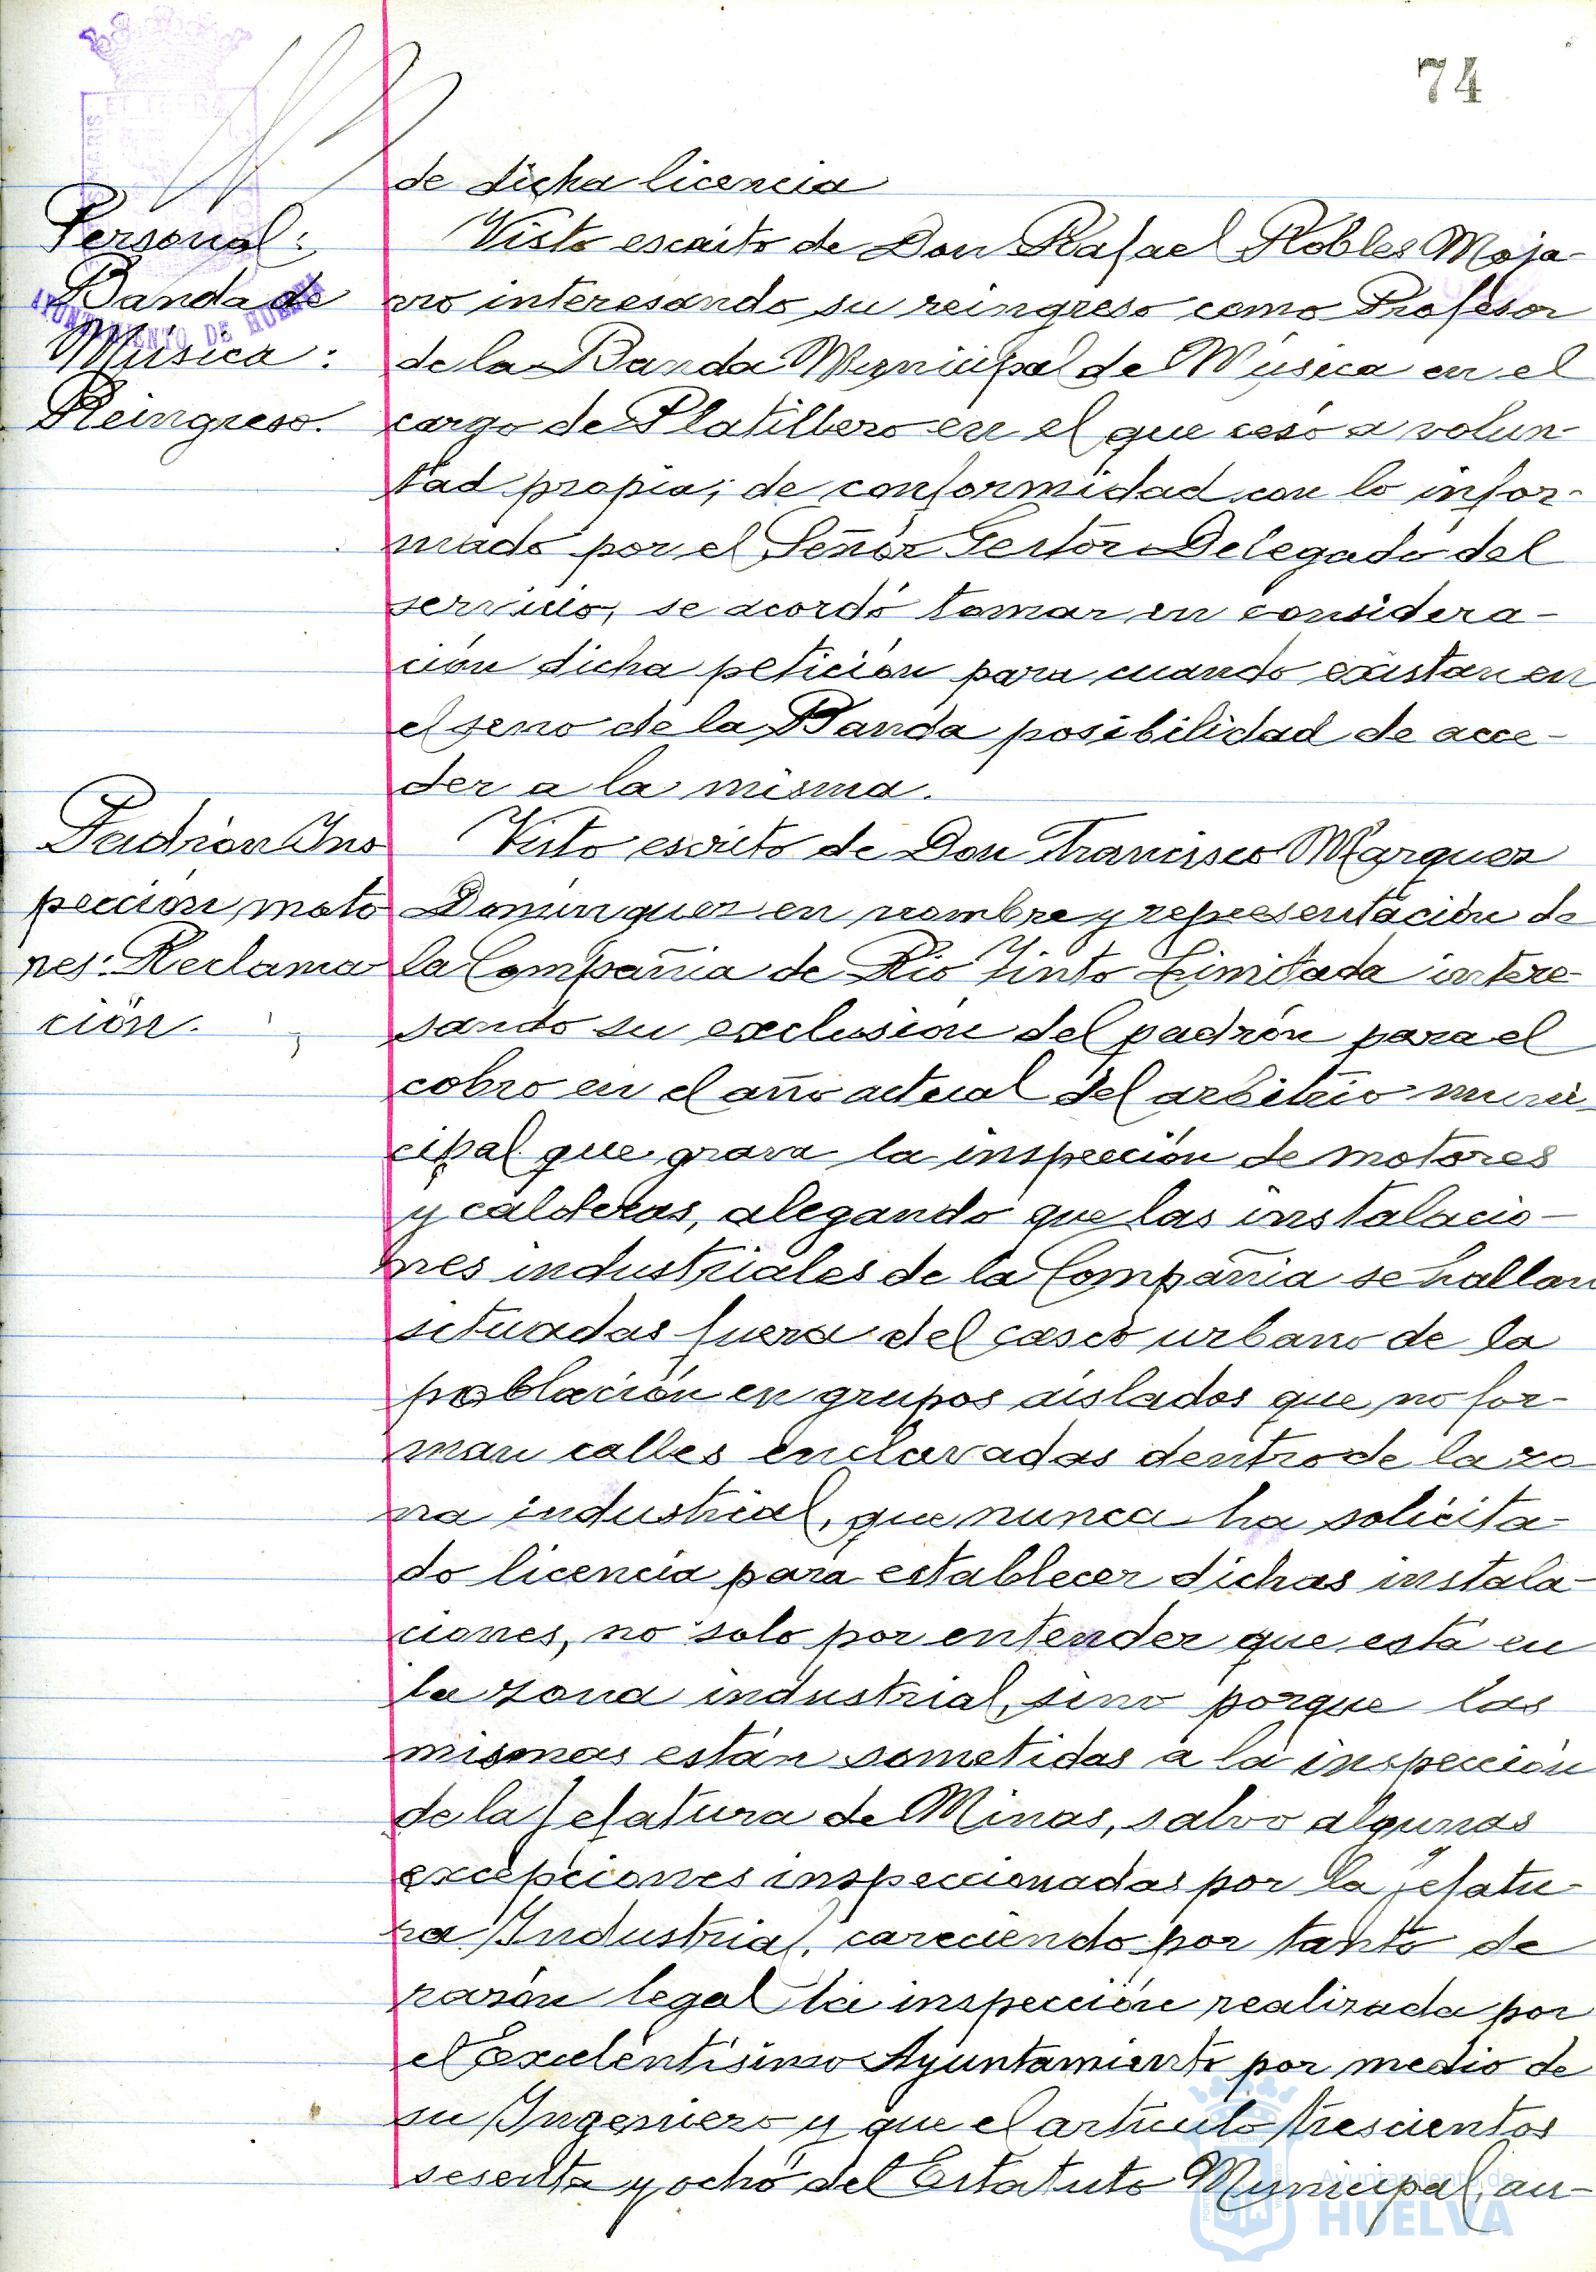 74
de dicha licencia
Personal:
Banda de
Música:
Reingreso.
AYUNTAMIENTO DE HUELVA
Visto escrito de Don Rafael Robles Moja-
rro interesando su reingreso como Profesor
de la Banda Municipal de Música en el
cargo de Platillero en el que cesó a volun-
tad propia; de conformidad con lo infor-
mado por el Señor Gestor Delegado del
servicio, se acordó tomar en considera-
ción dicha petición para cuando existan en
el seno de la Banda posibilidad de acce-
der a la misma.
Padrón Ins
pección moto
res: Reclama
ción.
Visto escrito de Don Francisco Marquez
Dominguez en nombre y representación de
la Compañia de Rio Tinto Limitada intere-
sando su exclusión del padrón para el
cobro en el año actual del arbitrio muni-
cipal que grava la inspección de motores
y calderas, alegando que las instalacio-
nes industriales de la Compañia se hallan
situadas fuera del casco urbano de la
población en grupos aislados que no for-
man calles enclavadas dentro de la zo-
na industrial, que nunca ha solicita-
do licencia para establecer dichas instala-
ciones, no solo por entender que está en
la zona industrial, sino porque las
mismas están sometidas a la inspección
de la Jefatura de Minas, salvo algunas
excepciones inspeccionadas por la jefatu-
ra Industrial, careciendo por tanto de
razón legal la inspección realizada por
el Excelentísimo Ayuntamiento por medio de
su Ingeniero y que el artículo trescientos
sesenta y ocho del Estatuto Municipal, au-
Ayuntamiento de
HUELVA